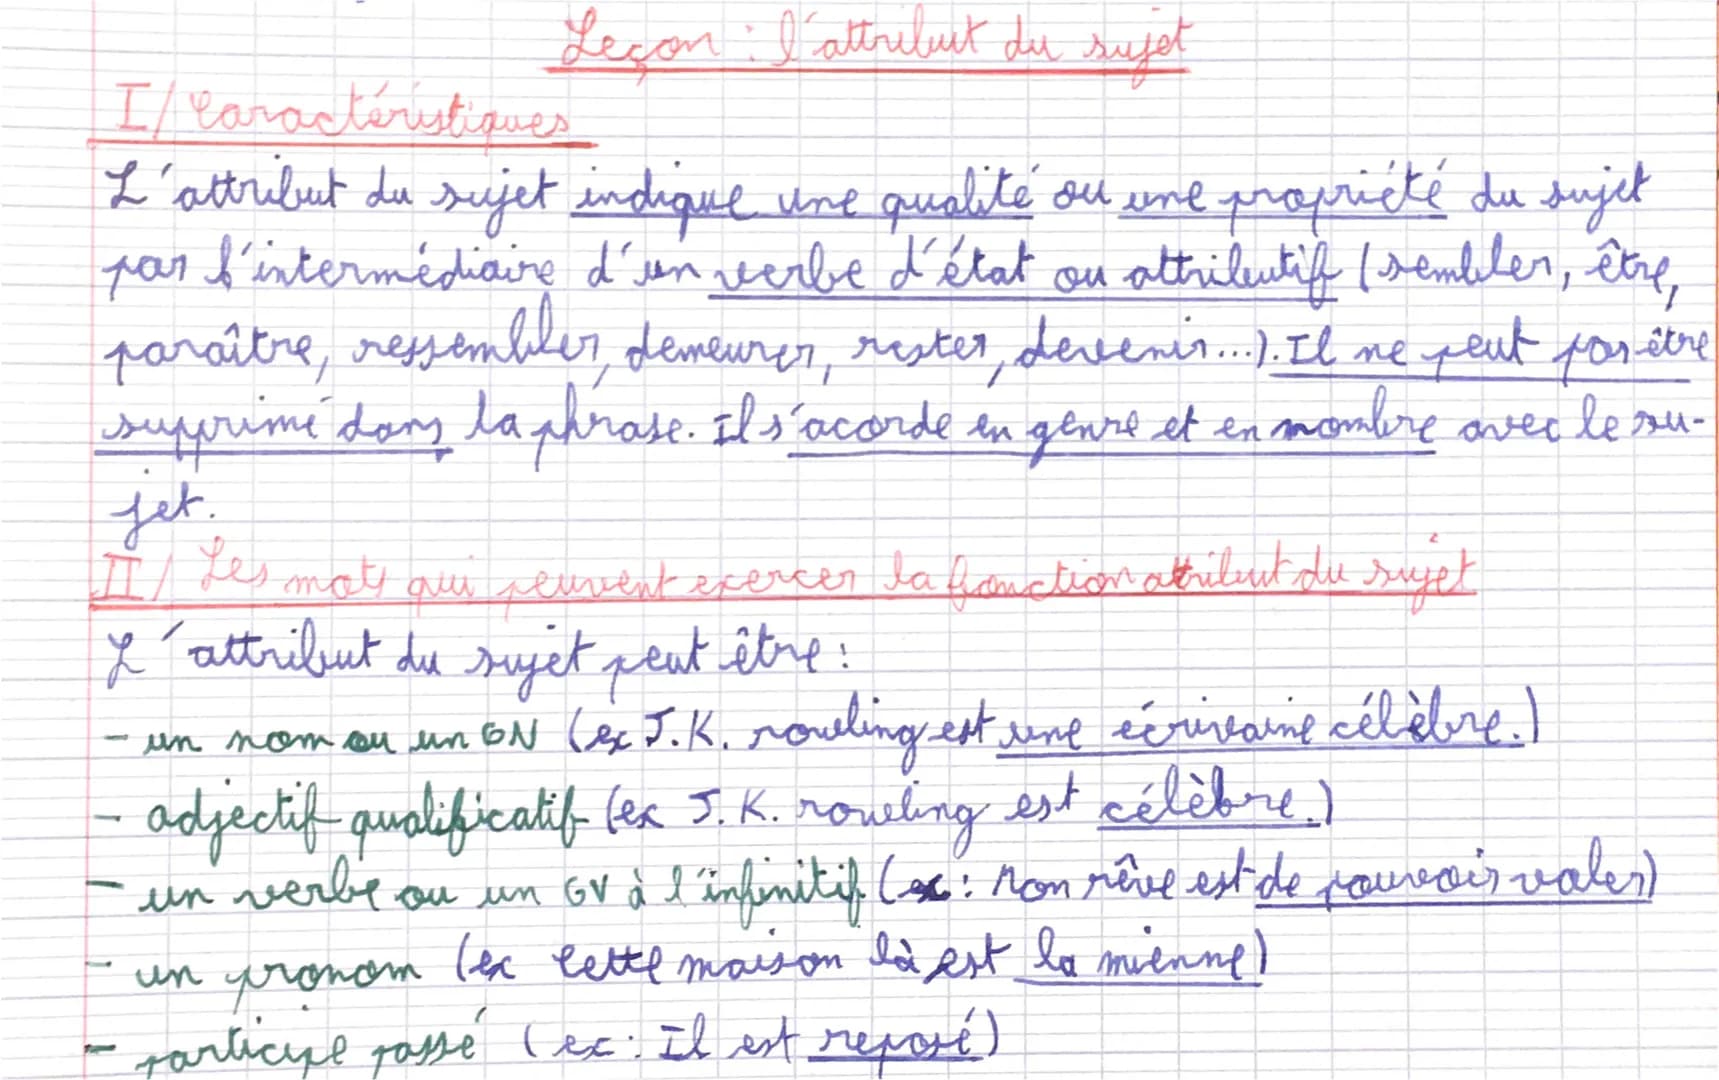 Leçon : l'attribut du sujet
I/ Caractéristiques
L'attribut du sujet indique une qualité ou une propriété du sujet
par l'intermédiaire d'un verbe d'état ou attributif (sembler, être,
paraître, ressembler, demeurer, rester, devenir...). Il ne peut pas être
supprimé dans la phrase. Il s'acorde en genre et en nombre avec le su-
jet.
II/ Les mots qui peuvent exercer la fonction attribut du sujet
L'attribut du sujet peut être :
- un nom ou un GN (ex J.K. rowling est une écrivaine célèbre.)
- adjectif qualificatif (ex J.K. rowling est célèbre.)
- un verbe ou un GV à l'infinitif (ex : Mon rêve est de pouvoir voler)
- un pronom (ex Cette maison là est la mienne)
- participe passé (ex : Il est reposé)